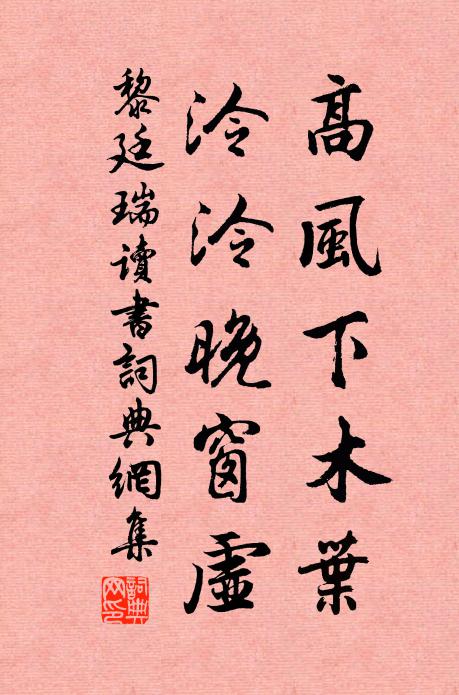 高風下木葉
泠泠晚窗虛
黎廷瑞讀書詞典網集
詞典网印